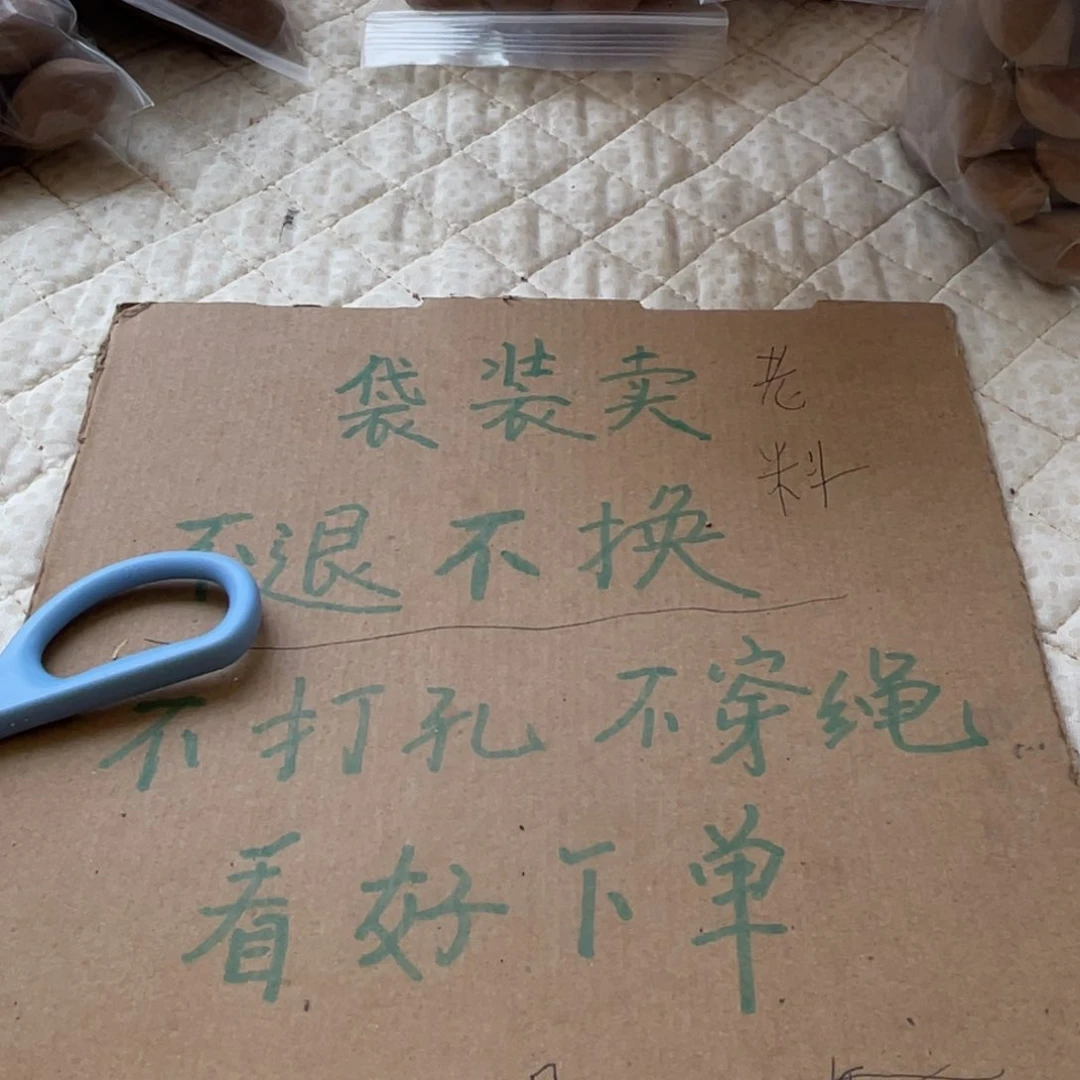 袋装卖 老料
不退不换
不打孔 不穿绳
看好下单